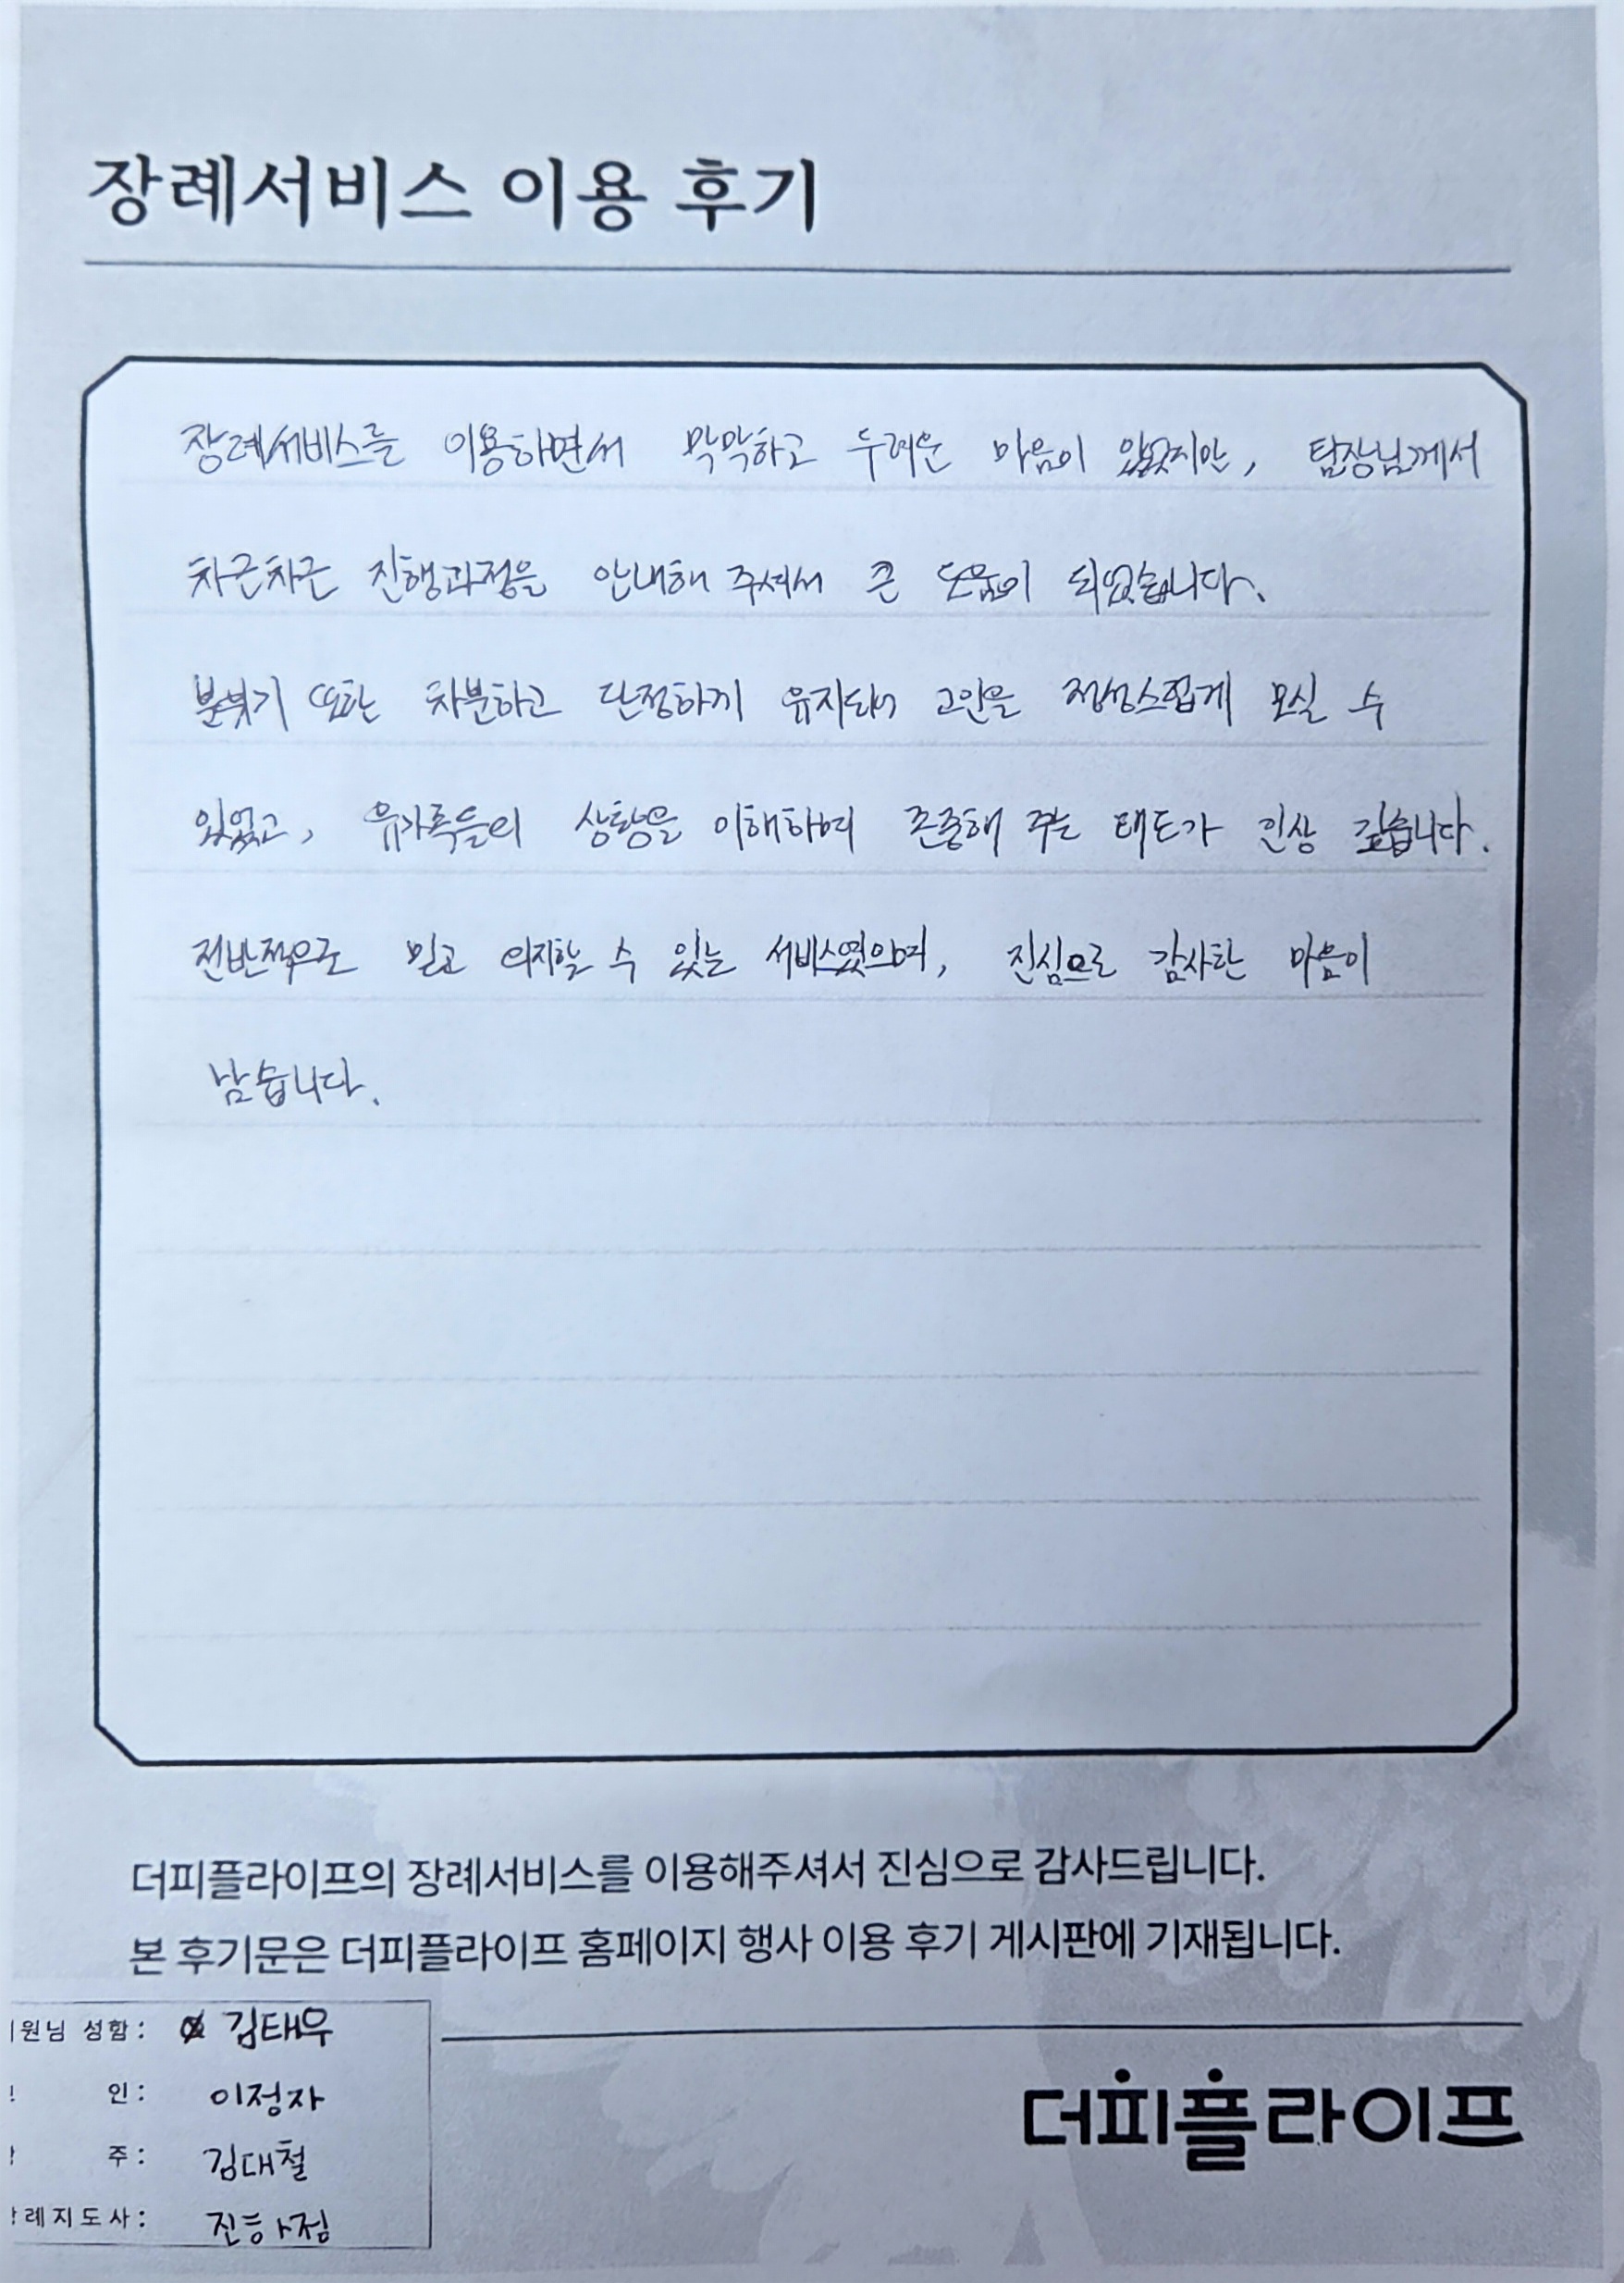 장례서비스 이용 후기
장례서비스를 이용하면서 막막하고 두려운 마음이 있었지만, 팀장님께서
차근차근 진행과정을 안내해 주셔서 큰 도움이 되었습니다.
분위기 또한 차분하고 단정하게 유지되어 고인을 정성스럽게 모실 수
있었고, 유가족들의 상황을 이해하며 존중해 주는 태도가 인상 깊습니다.
전반적으로 믿고 의지할 수 있는 서비스였으며, 진심으로 감사한 마음이
남습니다.
더피플라이프의 장례서비스를 이용해주셔서 진심으로 감사드립니다.
본 후기문은 더피플라이프 홈페이지 행사 이용 후기 게시판에 기재됩니다.
원님 성함: 김태우
인: 이정자
주: 김대철
례지도사:
더피플라이프